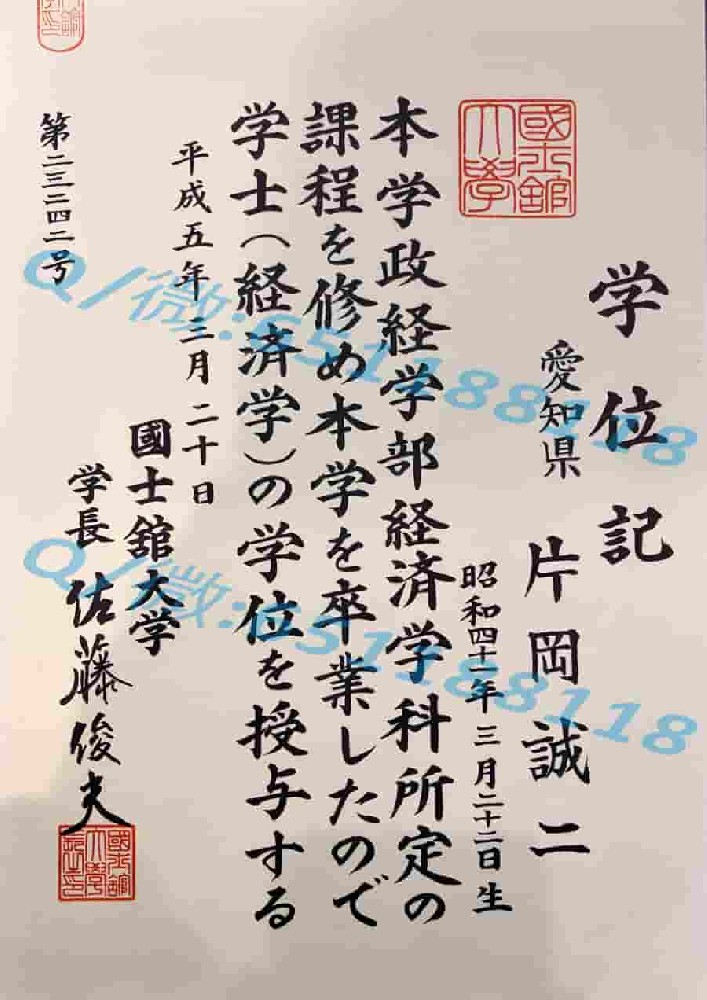 学位記
愛知県
片岡誠二
昭和四十一年三月二十二日生
本学政経学部経済学科所定の
課程を修め本学を卒業したので
学士（経済学）の学位を授与する
平成五年三月二十日
國士舘大学
学長 佐藤俊夫
第二三二四二号
國士舘大學
Q/微:551188118
Q/微:551188118